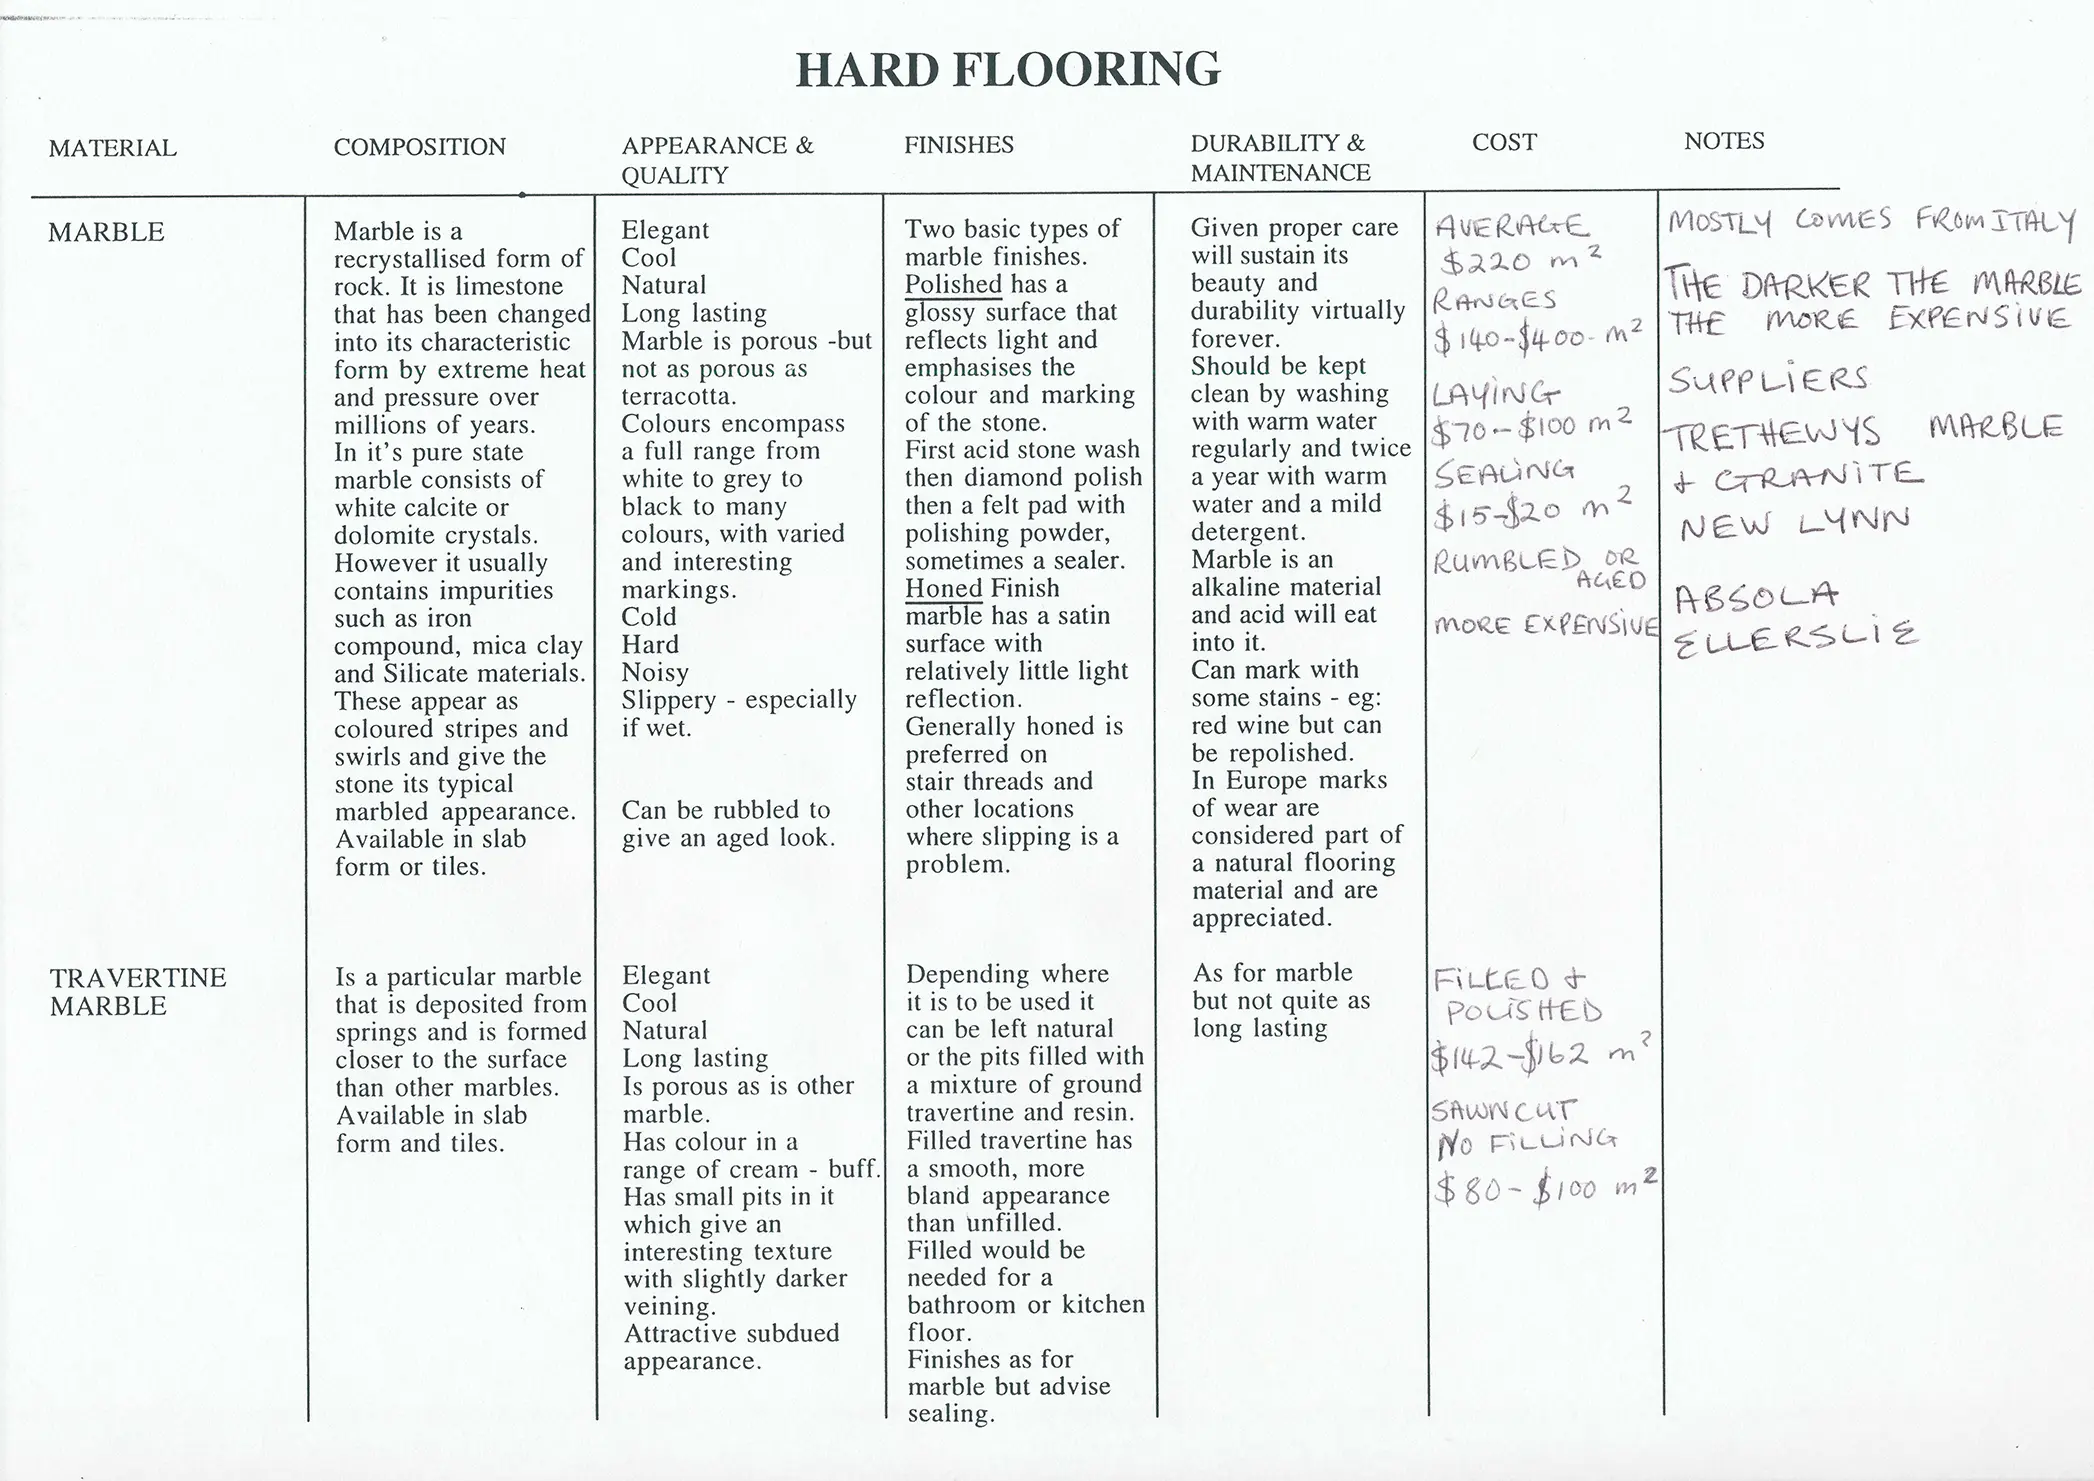 HARD FLOORING
MATERIAL
COMPOSITION
APPEARANCE &
QUALITY
FINISHES
DURABILITY &
MAINTENANCE
COST
NOTES
MARBLE
Marble is a
recrystallised form of
rock. It is limestone
that has been changed
into its characteristic
form by extreme heat
and pressure over
millions of years.
In it's pure state
marble consists of
white calcite or
dolomite crystals.
However it usually
contains impurities
such as iron
compound, mica clay
and Silicate materials.
These appear as
coloured stripes and
swirls and give the
stone its typical
marbled appearance.
Available in slab
form or tiles.
Elegant
Cool
Natural
Long lasting
Marble is porous -but
not as porous as
terracotta.
Colours encompass
a full range from
white to grey to
black to many
colours, with varied
and interesting
markings.
Cold
Hard
Noisy
Slippery - especially
if wet.
Can be rubbled to
give an aged look.
Two basic types of
marble finishes.
Polished has a
glossy surface that
reflects light and
emphasises the
colour and marking
of the stone.
First acid stone wash
then diamond polish
then a felt pad with
polishing powder,
sometimes a sealer.
Honed Finish
marble has a satin
surface with
relatively little light
reflection.
Generally honed is
preferred on
stair threads and
other locations
where slipping is a
problem.
Given proper care
will sustain its
beauty and
durability virtually
forever.
Should be kept
clean by washing
with warm water
regularly and twice
a year with warm
water and a mild
detergent.
Marble is an
alkaline material
and acid will eat
into it.
Can mark with
some stains - eg:
red wine but can
be repolished.
In Europe marks
of wear are
considered part of
a natural flooring
material and are
appreciated.
AVERAGE
$220 m²
RANGES
$140-$400- m²
LAYING
$70-$100 m²
SEALING
$15-$20 m²
RUMBLED OR
AGED
MORE EXPENSIVE
MOSTLY COMES FROM ITALY
THE DARKER THE MARBLE
THE MORE EXPENSIVE
SUPPLIERS
TRETHEWYS MARBLE
& GRANITE
NEW LYNN
ABSOLA
ELLERSLIE
TRAVERTINE
MARBLE
Is a particular marble
that is deposited from
springs and is formed
closer to the surface
than other marbles.
Available in slab
form and tiles.
Elegant
Cool
Natural
Long lasting
Is porous as is other
marble.
Has colour in a
range of cream - buff.
Has small pits in it
which give an
interesting texture
with slightly darker
veining.
Attractive subdued
appearance.
Depending where
it is to be used it
can be left natural
or the pits filled with
a mixture of ground
travertine and resin.
Filled travertine has
a smooth, more
bland appearance
than unfilled.
Filled would be
needed for a
bathroom or kitchen
floor.
Finishes as for
marble but advise
sealing.
As for marble
but not quite as
long lasting
FILLED &
POLISHED
$142-$162 m²
SAWN CUT
NO FILLING
$80-$100 m²